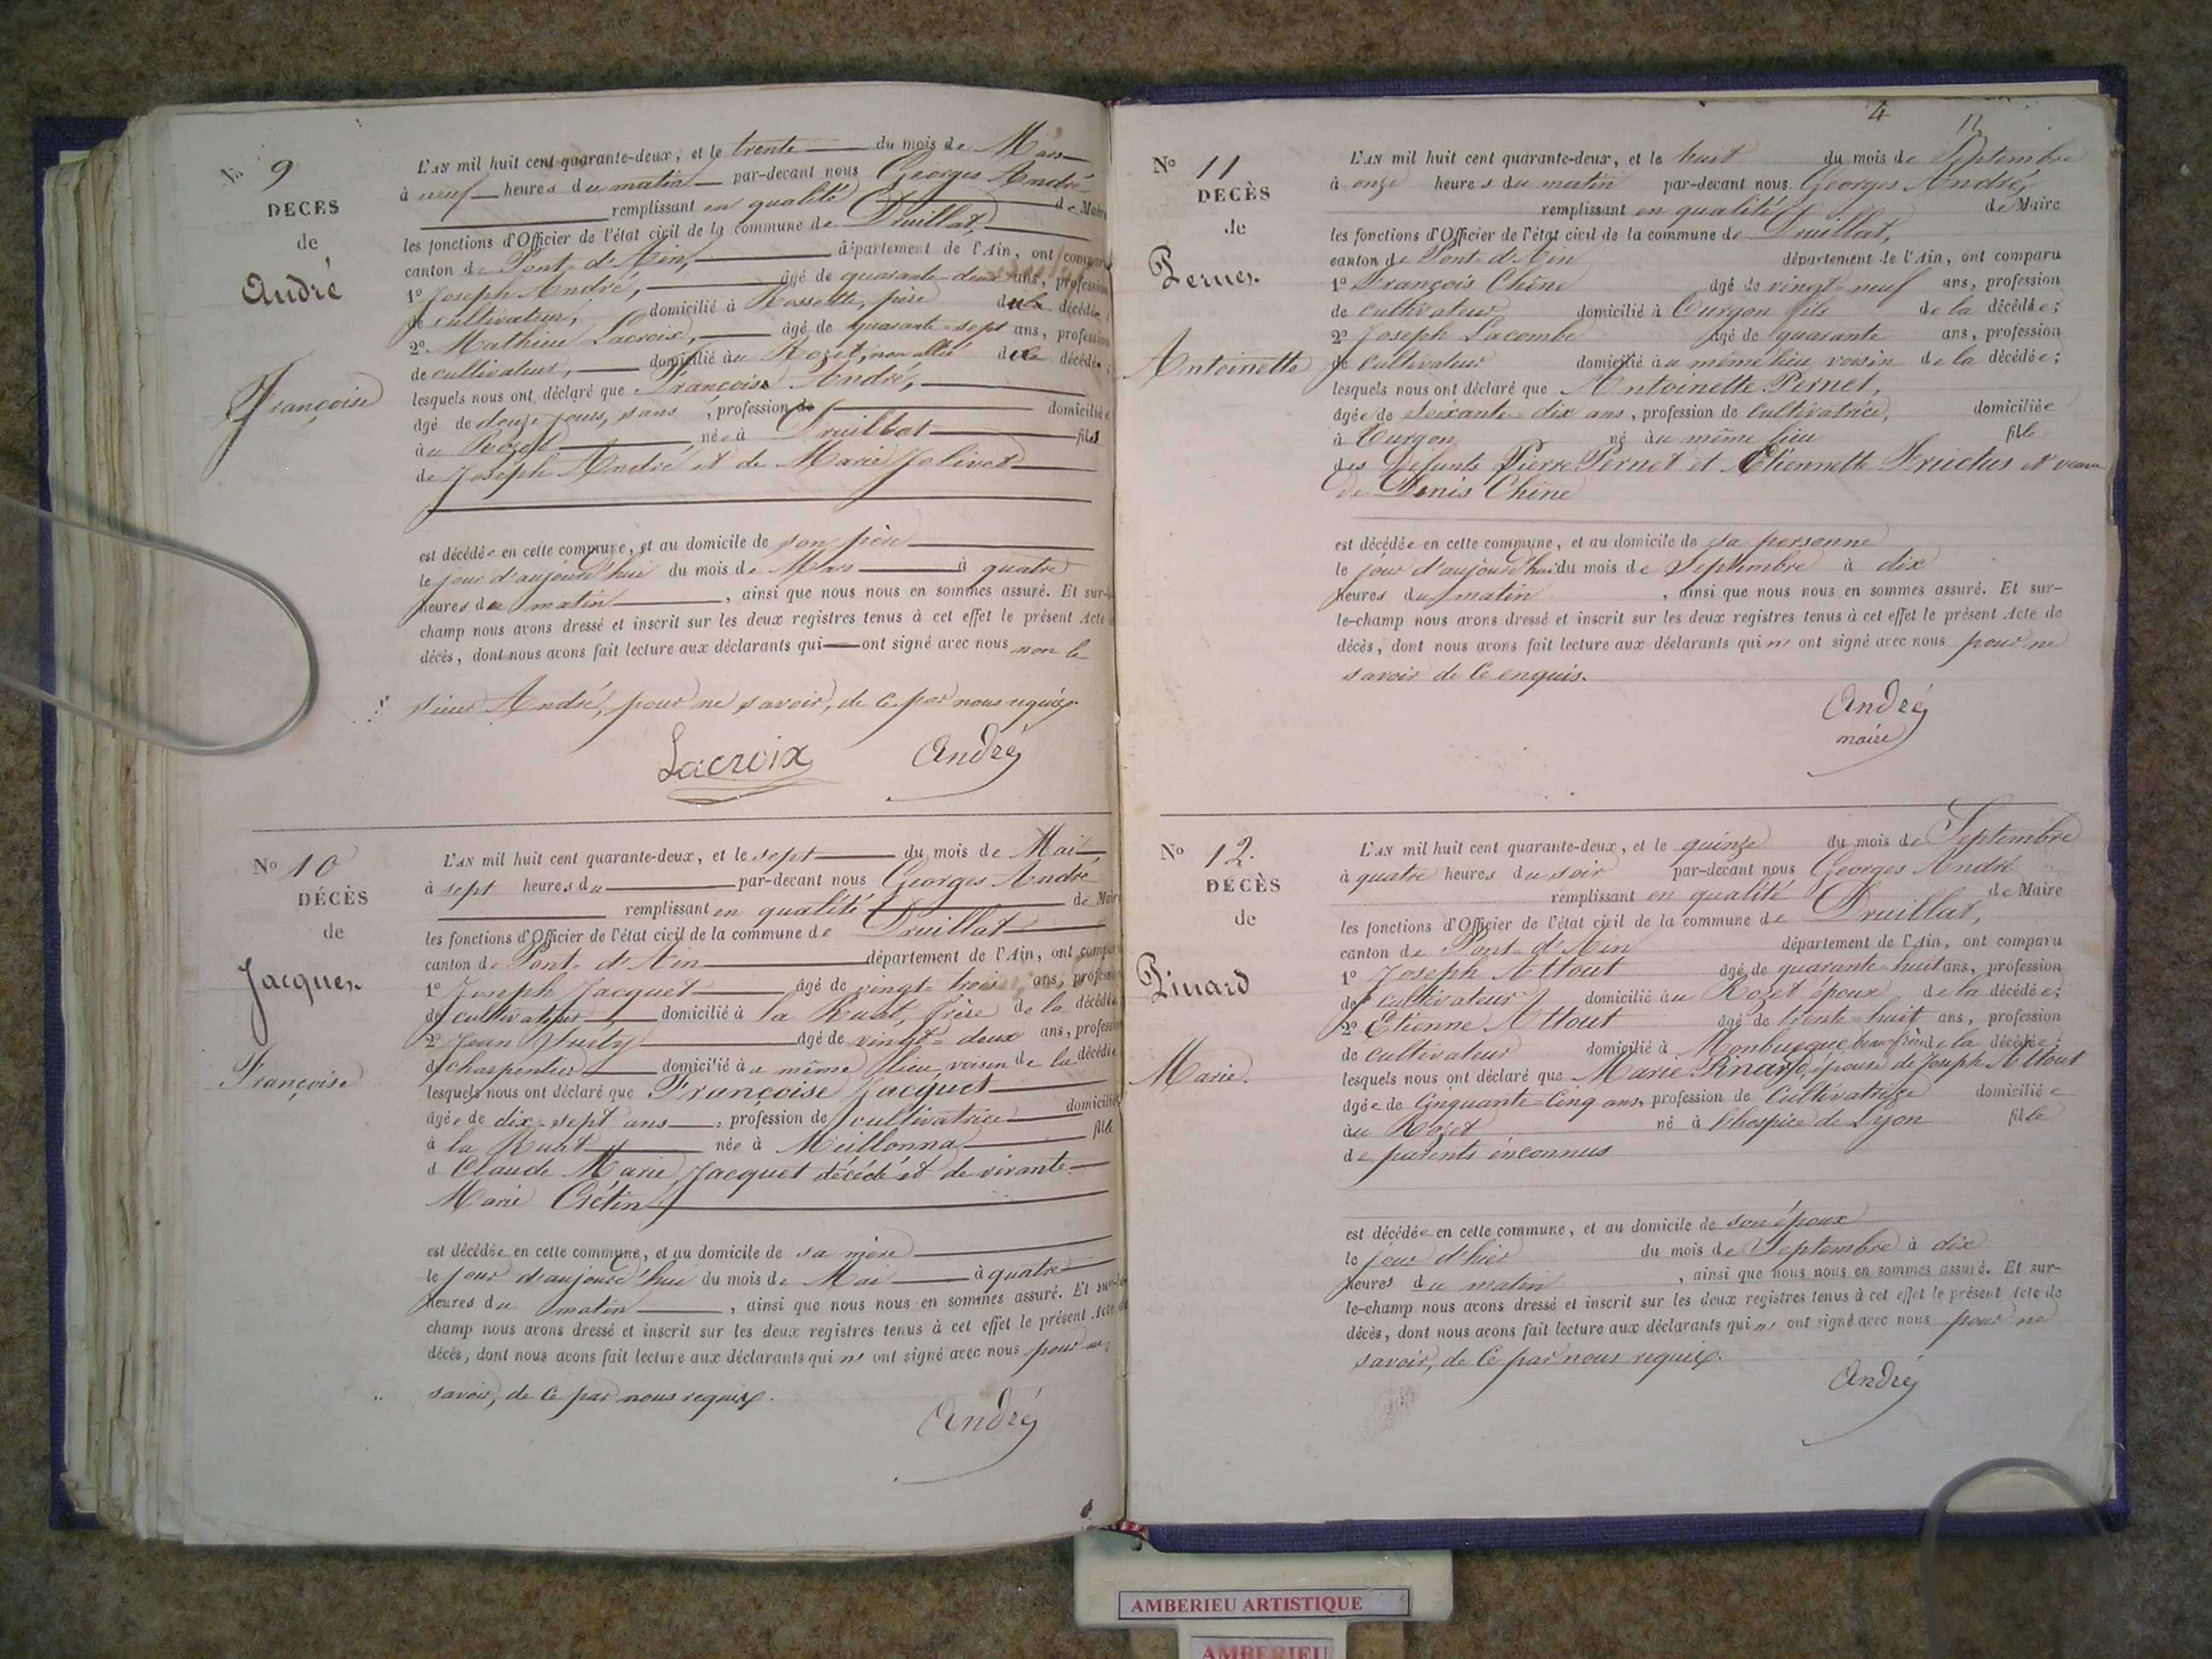 No 9
DECES
de
André
Françoise
L'AN mil huit cent quarante-deux, et le trente du mois de Mars
à neuf heures du matin par-devant nous Georges André
remplissant en qualité de Maire
les fonctions d'Officier de l'état civil de la commune de Druillat,
canton de Pont-d'Ain, département de l'Ain, ont comparu
1o Joseph André, âgé de quarante-deux ans, profession
de cultivateur, domicilié à Rossette, père de la décédée;
2o Mathieu Lacroix, âgé de quarante-sept ans, profession
de cultivateur, domicilié au Rozet, non allié de la décédée;
lesquels nous ont déclaré que Françoise André,
âgé de douze jours, sans , profession de domiciliée
au Rozet née à Druillat fille
de Joseph André et de Marie Jolivet
est décédée en cette commune, et au domicile de son père
le jour d'aujourd'hui du mois de Mars à quatre
heures du matin , ainsi que nous nous en sommes assuré. Et sur-le-
champ nous avons dressé et inscrit sur les deux registres tenus à cet effet le présent Acte de
décès, dont nous avons fait lecture aux déclarants qui ont signé avec nous non le
sieur André, pour ne savoir, de ce par nous requis.
Lacroix André
No 10
DÉCÈS
de
Jacquet
Françoise
L'AN mil huit cent quarante-deux, et le sept du mois de Mai
à sept heures du par-devant nous Georges André
remplissant en qualité de Maire
les fonctions d'Officier de l'état civil de la commune de Druillat
canton de Pont-d'Ain département de l'Ain, ont comparu
1o Joseph Jacquet âgé de vingt-trois ans, profession
de cultivateur domicilié à la Ruat, frère de la décédée
2o Jean âgé de vingt-deux ans, profession
de charpentier domicilié au même lieu, voisin de la décédée
lesquels nous ont déclaré que Françoise Jacquet
âgée de dix-sept ans , profession de cultivatrice domiciliée
à la Ruat née à Meillonna fille
d Claude Marie Jacquet décédé et de vivante
Marie Crétin
est décédée en cette commune, et au domicile de sa mère
le jour d'aujourd'hui du mois de Mai à quatre
heures du matin , ainsi que nous nous en sommes assuré. Et sur-le-
champ nous avons dressé et inscrit sur les deux registres tenus à cet effet le présent Acte de
décès, dont nous avons fait lecture aux déclarants qui n' ont signé avec nous pour ne
savoir, de ce par nous requis.
André
4
No 11
DECÈS
de
Pernet
Antoinette
L'AN mil huit cent quarante-deux, et le huit du mois de Septembre
à onze heures du matin par-devant nous Georges André,
remplissant en qualité de Maire
les fonctions d'Officier de l'état civil de la commune de Druillat,
canton de Pont-d'Ain département de l'Ain, ont comparu
1o François Chêne âgé de vingt-neuf ans, profession
de cultivateur domicilié à Turgon fils de la décédée;
2o Joseph Lacombe âgé de quarante ans, profession
de cultivateur domicilié au même lieu, voisin de la décédée;
lesquels nous ont déclaré que Antoinette Pernet,
âgée de soixante-dix ans, profession de Cultivatrice, domiciliée
à Turgon né au même lieu fille
des Défunts Pierre Pernet et Etiennette Fructus et veuve
de Denis Chêne
est décédée en cette commune, et au domicile de sa personne
le jour d'aujourd'hui du mois de Septembre à dix
heures du matin , ainsi que nous nous en sommes assuré. Et sur-
le-champ nous avons dressé et inscrit sur les deux registres tenus à cet effet le présent Acte de
décès, dont nous avons fait lecture aux déclarants qui n' ont signé avec nous pour ne
savoir de ce enquis.
André
maire
No 12.
DÉCÈS
de
Pinard
Marie.
L'AN mil huit cent quarante-deux, et le quinze du mois de Septembre
à quatre heures du soir par-devant nous Georges André
remplissant en qualité de Maire
les fonctions d'Officier de l'état civil de la commune de Druillat,
canton de Pont-d'Ain département de l'Ain, ont comparu
1o Joseph Attout âgé de quarante-huit ans, profession
de cultivateur domicilié au Rozet époux de la décédée;
2o Etienne Attout âgé de trente-huit ans, profession
de cultivateur domicilié à beau-frère de la décédée;
lesquels nous ont déclaré que Marie Pinard, épouse de Joseph Attout
âgée de Cinquante-Cinq ans, profession de Cultivatrice domiciliée
au Rozet né à l'hospice de Lyon fille
de parents inconnus
est décédée en cette commune, et au domicile de son époux
le jour d'hier du mois de Septembre à dix
heures du matin , ainsi que nous nous en sommes assuré. Et sur-
le-champ nous avons dressé et inscrit sur les deux registres tenus à cet effet le présent Acte de
décès, dont nous avons fait lecture aux déclarants qui n' ont signé avec nous pour ne
savoir, de ce par nous requis.
André
AMBERIEU ARTISTIQUE
AMBERIEU